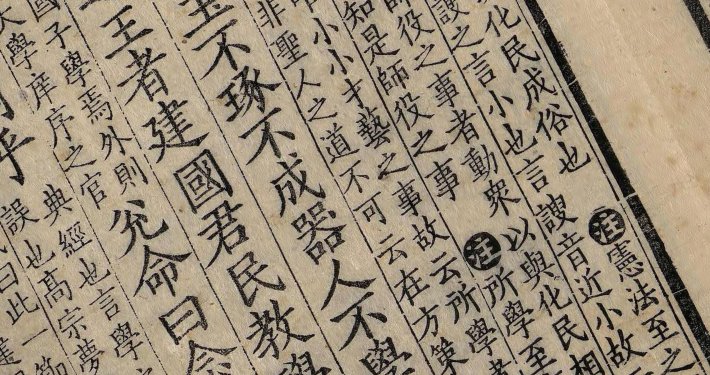 化民成俗也注憲法至之
謏之言小也言謏音近小故
師役之事者動衆以與化民相
知是師役之事注所學至
小小才藝之事故云所學者
非聖人之道不可云在方策
玉不琢不成器人不學
王者建國君民教學
國子學焉外則
大學庠序之官
兌命曰念
典經也言學
誤也高宗夢
曰此一節